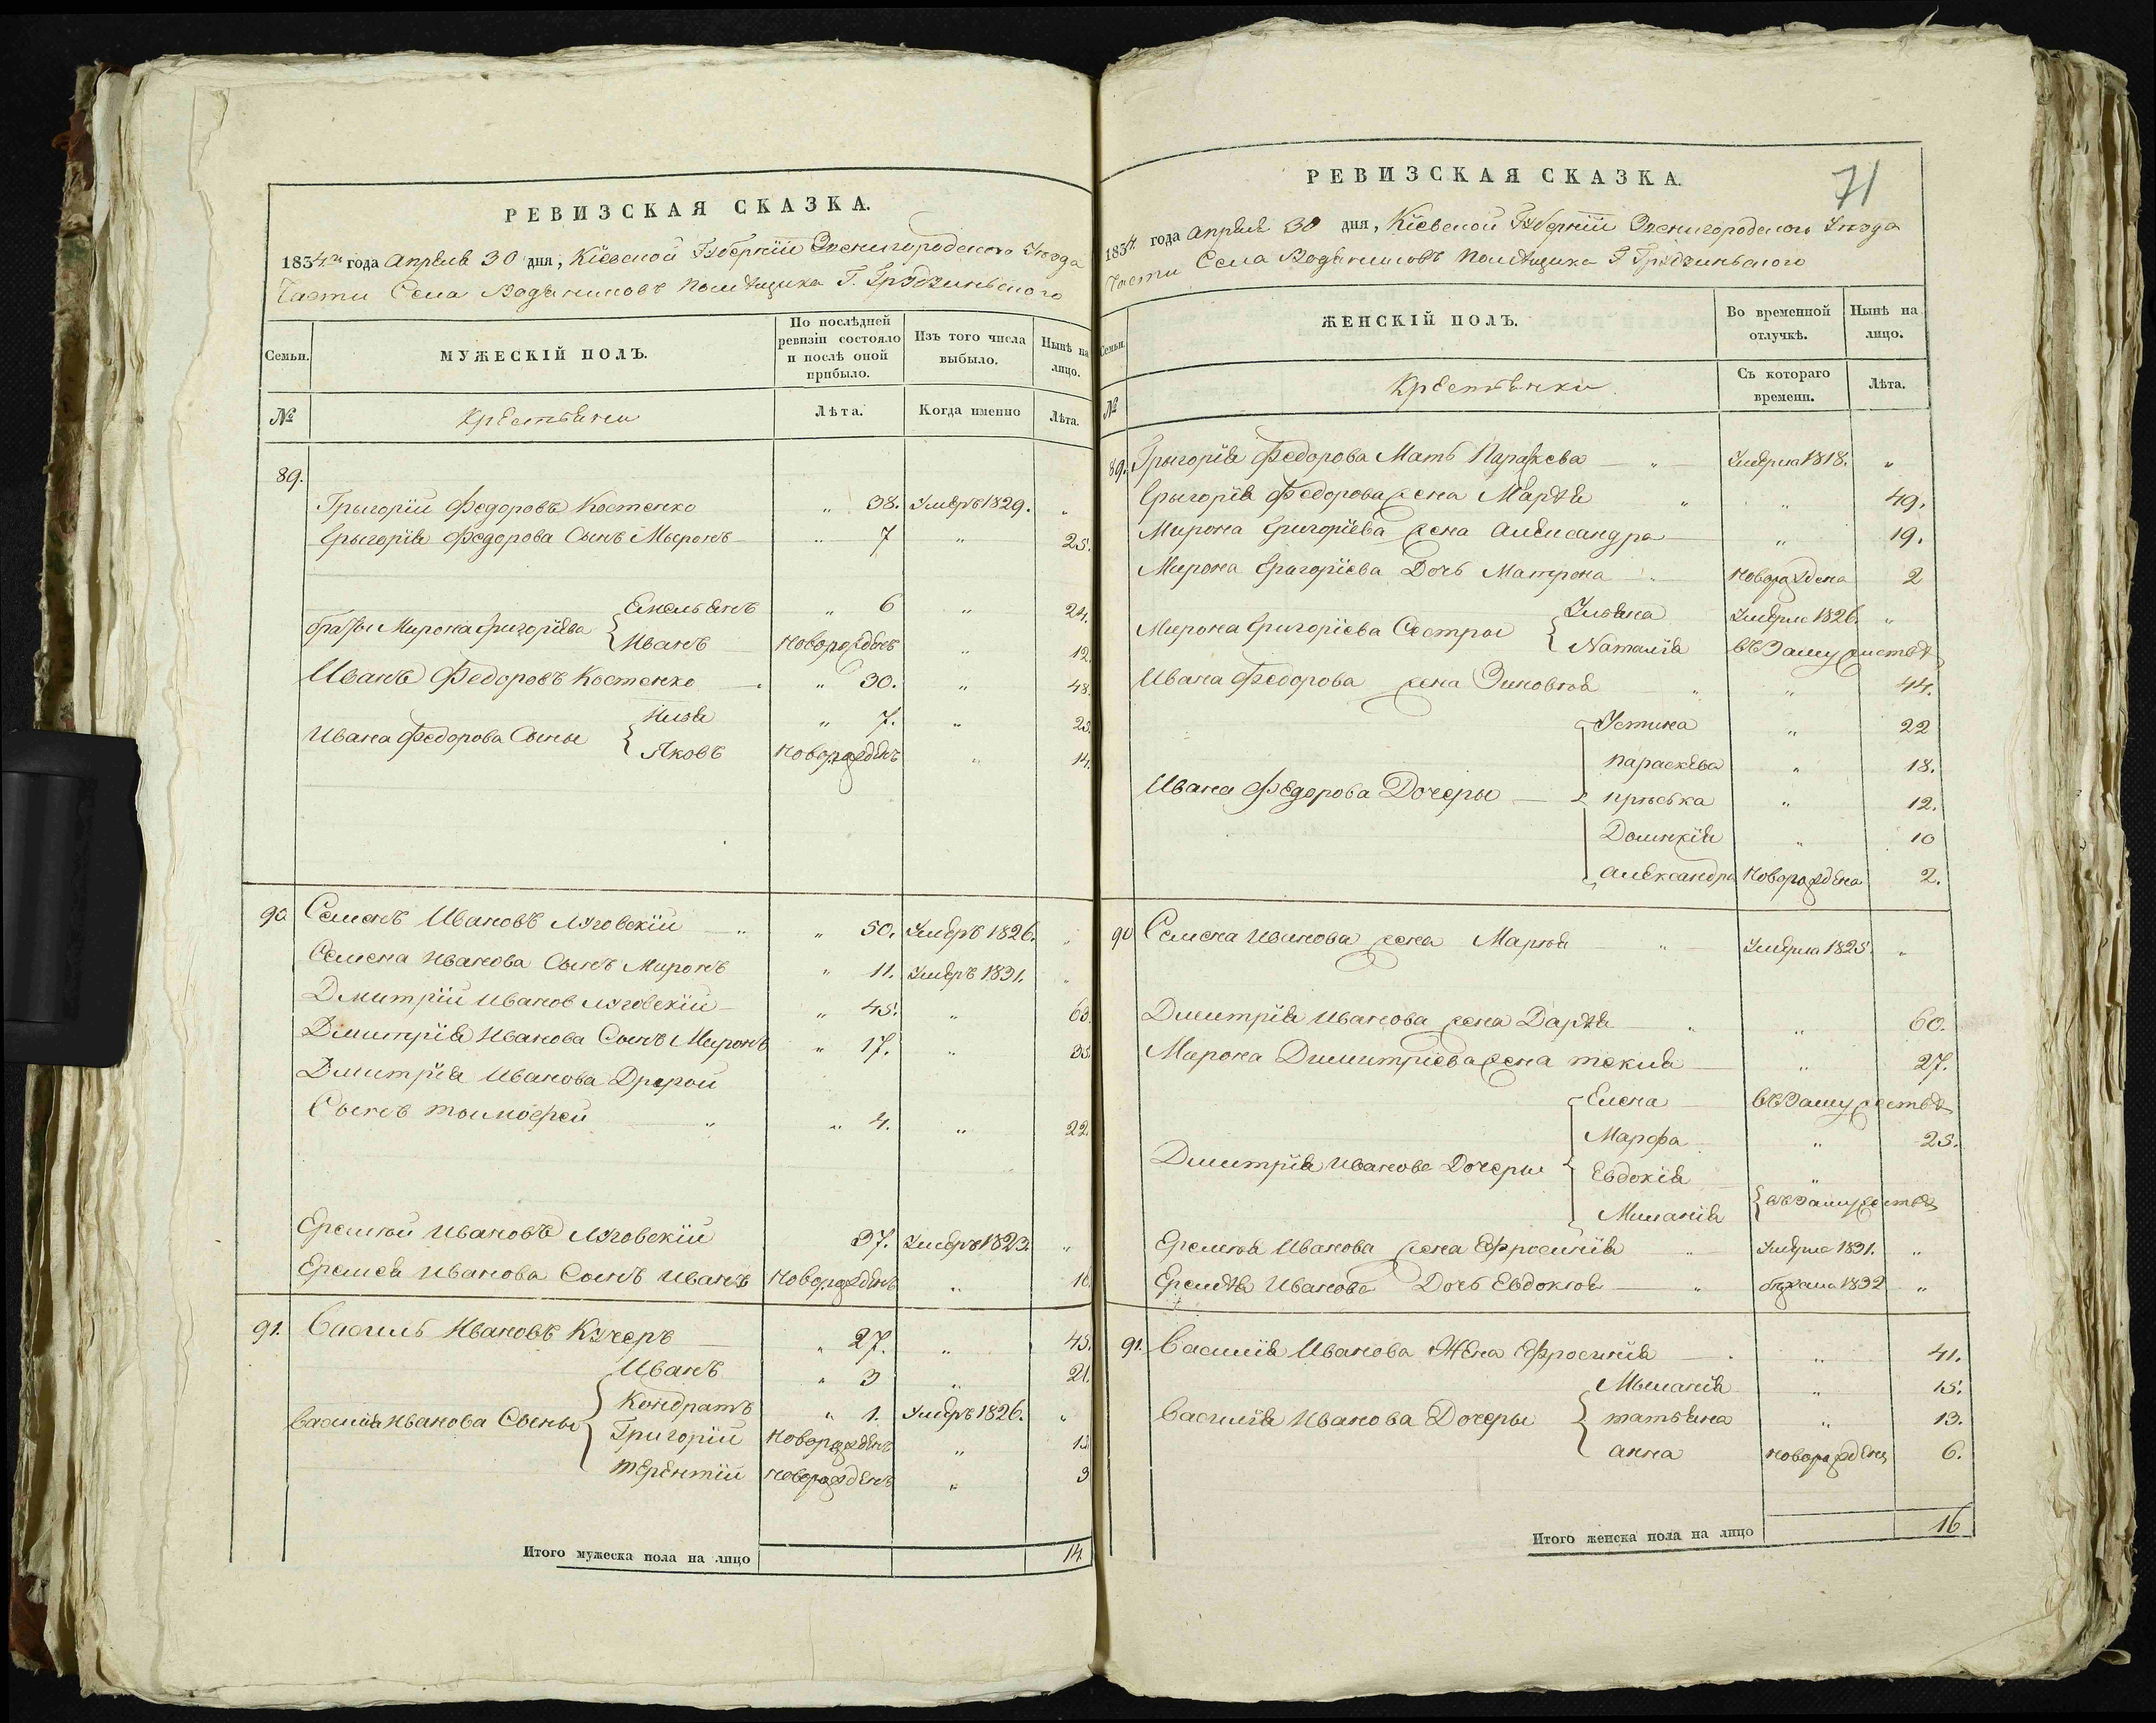 РЕВИЗСКАЯ СКАЗКА.
1834.го года Апреля 30 дня, Кіевской Губерніи Звенигородского Уезда
Части Села Водяниковъ помѣщика Г. Грудзинского
Семьи.
МУЖЕСКІЙ ПОЛЪ.
По послѣдней ревизіи состояло и послѣ оной прибыло.
Изъ того числа выбыло.
Нынѣ на лицо.
№
Крестьяни
Лѣта.
Когда именно
Лѣта.
89.
Грыгорій Федоровъ Костенко „ 38. Умеръ 1829. „
Грыгорія Федорова Сынъ Мыронъ „ 7 „ 25.
Братьи Мирона Григоріева { Емельянъ „ 6 „ 24.
Иванъ Новорожденъ „ 12.
Иванъ Федоровъ Костенко „ 30. „ 48.
Ивана Федорова Сыны { Илья „ 7. „ 25.
Яковъ Новорожденъ „ 14.
90 Семенъ Ивановъ Луговскій „ „ 50. Умеръ 1826. „
Семена Иванова Сынъ Миронъ „ 11. Умеръ 1831. „
Дмитрій Иванов Луговскій „ 45. „ 63.
Дмитрія Иванова Сынъ Миронъ „ 17. „ 35.
Дмитрія Иванова Другой
Сынъ тымофей „ „ 4. „ 22.
Еремей Ивановъ Луговскій 37. Умеръ 1823. „
Еремея Иванова Сынъ Иванъ Новорожденъ „ 16.
91. Василь Ивановъ Кучеръ „ 27. „ 45.
Василія Иванова Сыны { Иванъ „ 3 „ 21.
Кондратъ „ 1. Умеръ 1826. „
Григорій Новорожденъ „ 13
терентій новорожденъ „ 3
Итого мужеска пола на лицо 14
71
РЕВИЗСКАЯ СКАЗКА.
1834. года Апреля 30 дня, Кіевской Губерніи Звенигородского Уезда
Части Села Водяниковъ помѣщика Г Грудзинского
Семьи.
ЖЕНСКІЙ ПОЛЪ.
Во временной отлучкѣ.
Нынѣ на лицо.
№
Крестьянки
Съ котораго времени.
Лѣта.
89. Грыгорія Федорова Мать Параскева „ Умерла 1818. „
Грыгорія Федорова жена Марѣя „ „ 49.
Мирона Григоріева жена Александра „ 19.
Мирона Грагоріева Дочь Матрона „ новорождена 2
Мирона Григоріева Сестры { Ульяна Умерла 1826. „
Наталія въ Замужествѣ
Ивана Федорова жена Зиновія „ „ 44.
Ивана Федорова Дочеры { Устина „ 22
Параскева „ 18.
пріська „ 12.
Домнкія „ 10
Александра Новорождена 2.
90 Семена Иванова жена Марія „ Умерла 1825. „
Дмитрія Иванова жена Дарѣя „ „ 60.
Мирона Димитріева жена текля „ 27.
Дмитрія Иванова Дочеры { Елена въ Замужествѣ
Марфа „ 25.
Евдокія „
Миланія { въ Замужествѣ
Еремѣя Иванова жена Ефросинія „ Умерла 1831. „
Еремѣя Иванова Дочь Евдокія „ бѣжала 1832 „
91. Василія Иванова Жена Ефросинія „ 41.
Василія Иванова Дочеры { Мыланія „ 15.
татьяна „ 13.
анна новорождена 6.
Итого женска пола на лицо 16